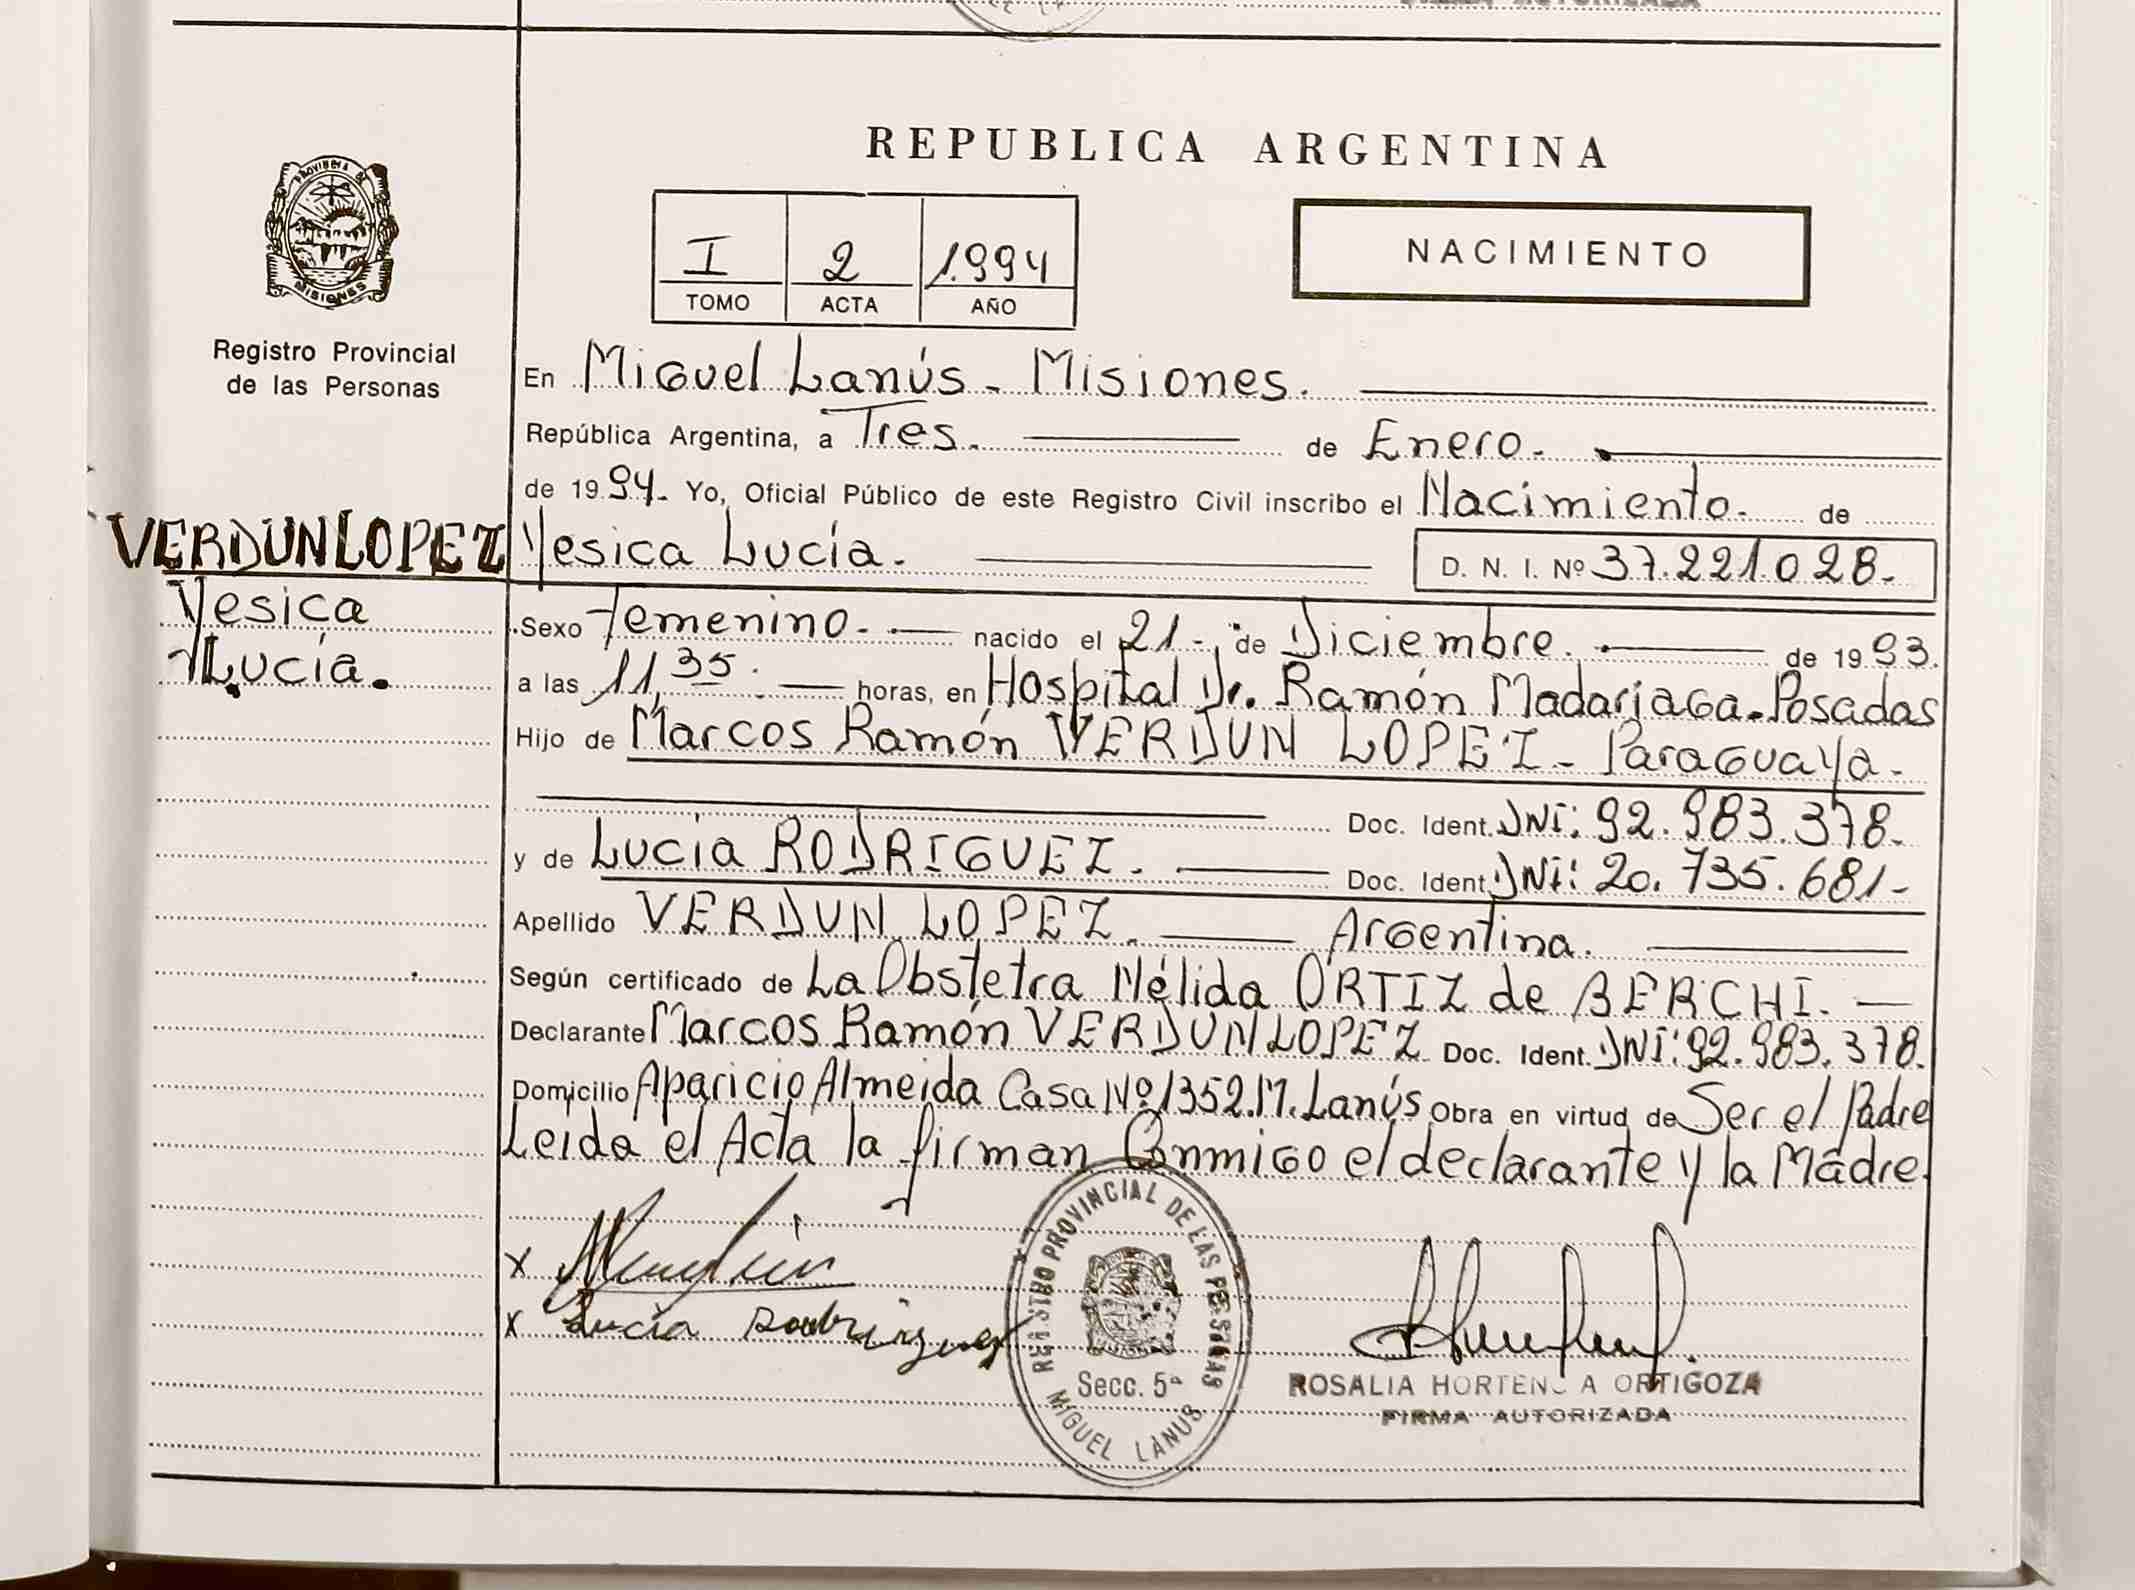 FIRMA AUTORIZADA
REPUBLICA ARGENTINA
PROVINCIA DE
MISIONES
I 2 1.994
TOMO ACTA AÑO
NACIMIENTO
Registro Provincial
de las Personas
En Miguel Lanús - Misiones.
República Argentina, a Tres. de Enero.
de 1994. Yo, Oficial Público de este Registro Civil inscribo el Nacimiento. de
VERDUN LOPEZ
Yesica Lucía. D. N. I. Nº 37.221.028.-
Yesica
Lucía.
Sexo femenino. nacido el 21 - de Diciembre. de 1993.
a las 11,35. horas, en Hospital Dr. Ramón Madariaga. Posadas
Hijo de Marcos Ramón VERDUN LOPEZ - Paraguaya.
Doc. Ident. DNI: 92.983.378.
y de Lucia RODRIGUEZ. Doc. Ident. DNI: 20.735.681-
Apellido VERDUN LOPEZ. Argentina.
Según certificado de La Obstetra Nélida ORTIZ de BERCHI.
Declarante Marcos Ramón VERDUN LOPEZ Doc. Ident. DNI: 92.983.378.
Domicilio Aparicio Almeida Casa Nº 1352. M. Lanús Obra en virtud de Ser el Padre
Leida el Acta la firman Conmigo el declarante y la Madre.
x
x Lucia Rodriguez
REGISTRO PROVINCIAL DE LAS PERSONAS
Secc. 5ª
MIGUEL LANUS
ROSALIA HORTENCIA ORTIGOZA
FIRMA AUTORIZADA